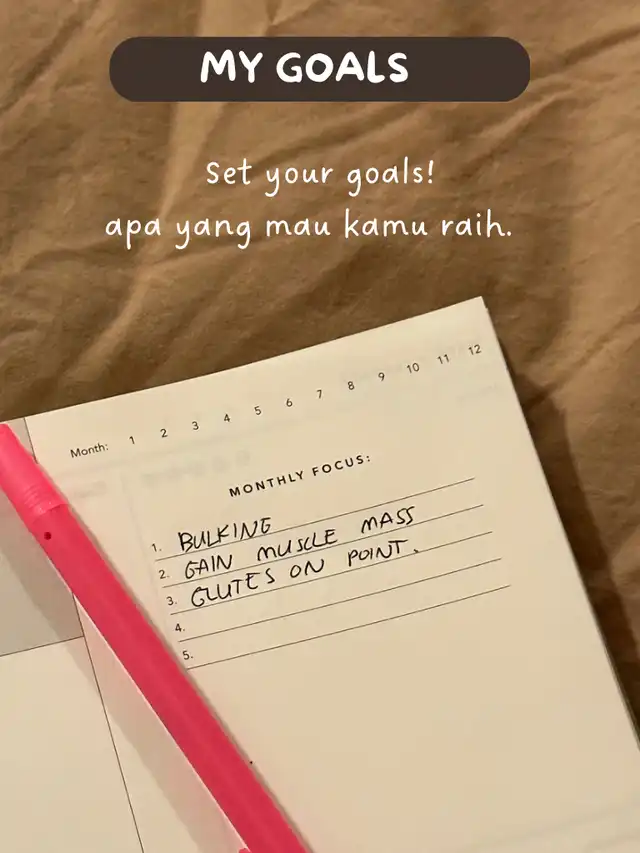 MY GOALS
Set your goals!
apa yang mau kamu raih.
Month: 1 2 3 4 5 6 7 8 9 10 11 12
MONTHLY FOCUS:
1. BULKING
2. GAIN MUSCLE MASS
3. GLUTES ON POINT.
4.
5.